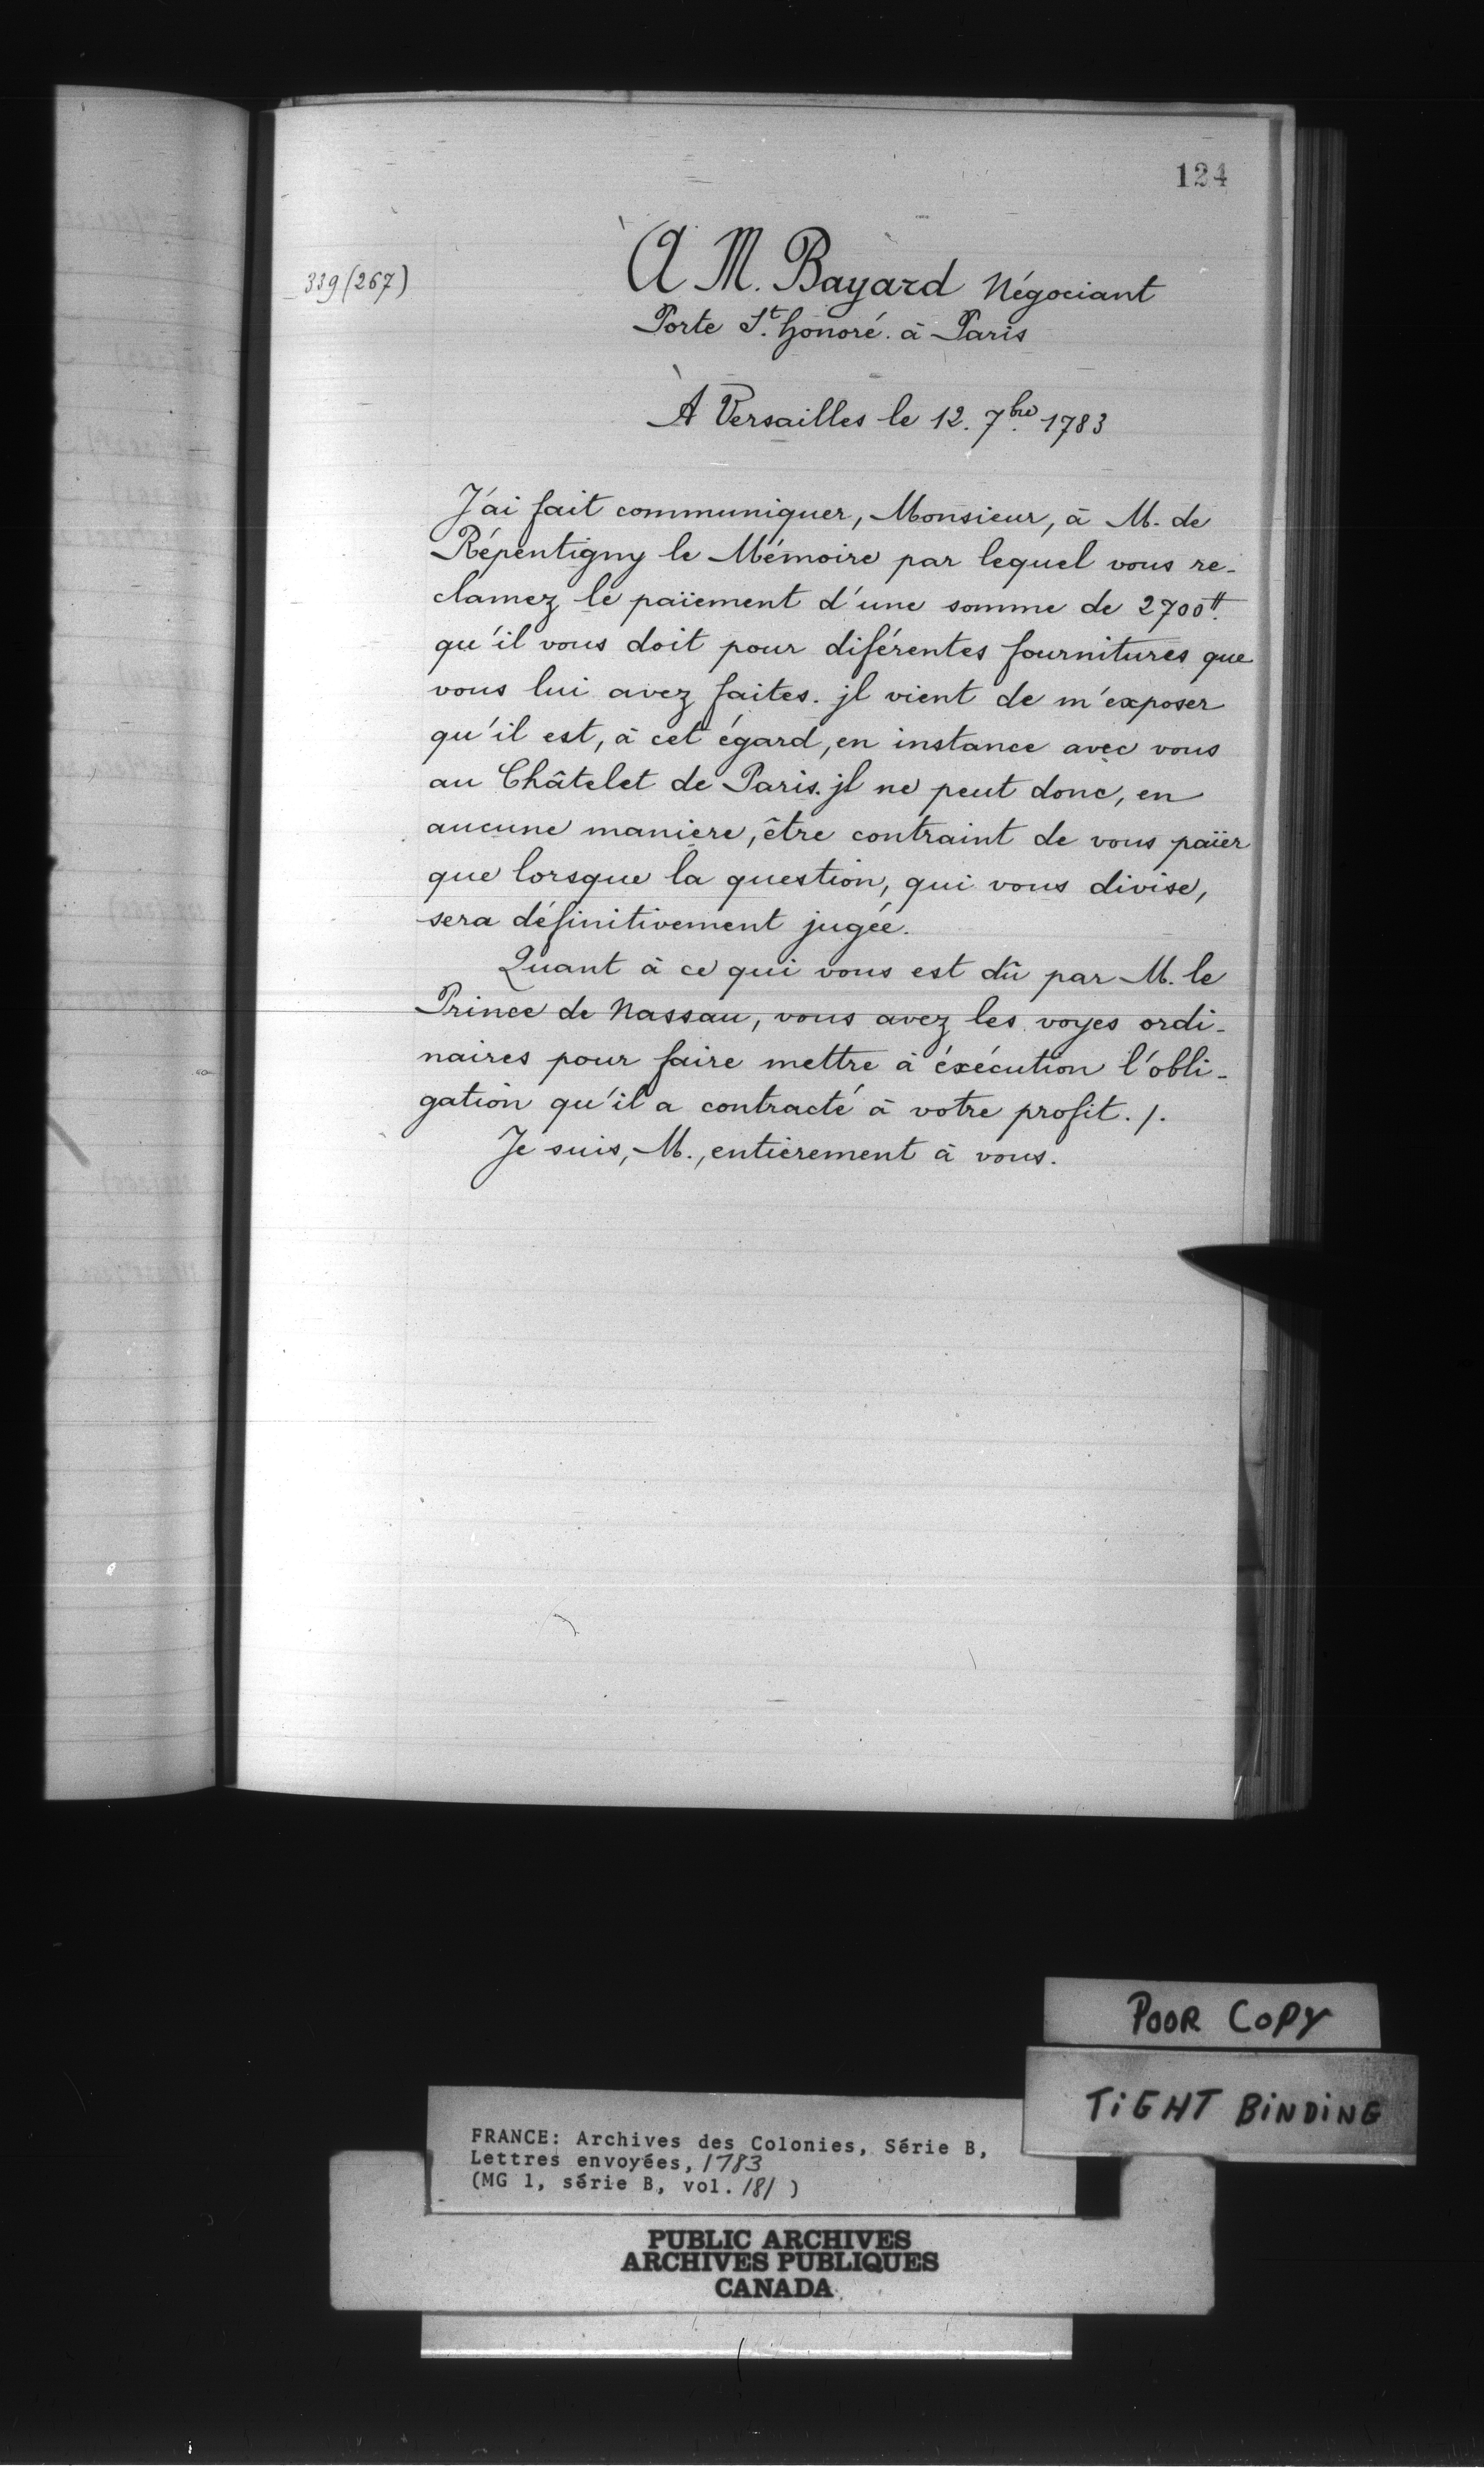 124
339 (267)
À M. Bayard Négociant
Porte St. honoré. à Paris
À Versailles le 12. 7bre. 1783
J'ai fait communiquer, Monsieur, à M. de
Répentigny le Mémoire par lequel vous re-
clamez le païement d'une somme de 2700tt.
qu'il vous doit pour diférentes fournitures que
vous lui avez faites. jl vient de m'exposer
qu'il est, à cet égard, en instance avec vous
au Châtelet de Paris. jl ne peut donc, en
aucune maniere, être contraint de vous païer
que lorsque la question, qui vous divise,
sera définitivement jugée.
Quant à ce qui vous est dû par M. le
Prince de Nassau, vous avez les voyes ordi-
naires pour faire mettre à éxécution l'obli-
gation qu'il a contracté à votre profit. /.
Je suis, M., entièrement à vous.
POOR COPY
TIGHT BINDING
FRANCE: Archives des Colonies, Série B,
Lettres envoyées, 1783
(MG 1, série B, vol. 181 )
PUBLIC ARCHIVES
ARCHIVES PUBLIQUES
CANADA